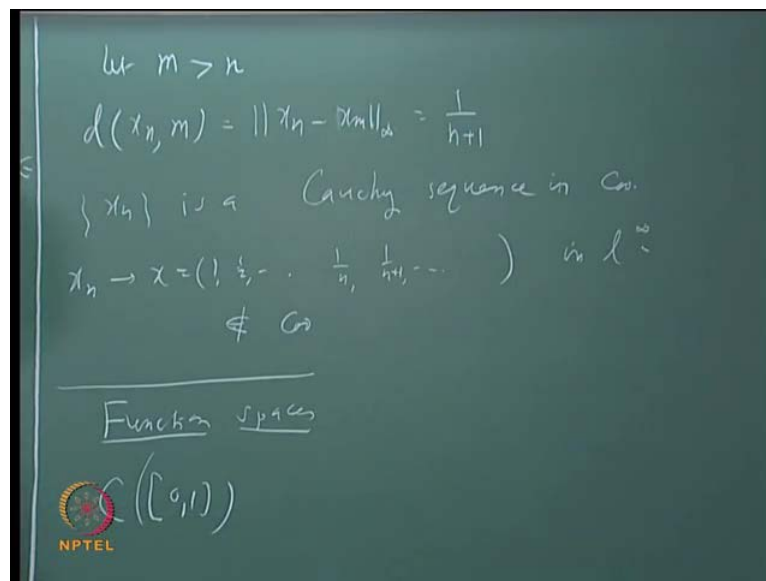 let m > n
d(xn, m) = ||xn - xm||∞ = 1/(n+1)
{xn} is a Cauchy sequence in C00.
xn → x = (1, 1/2, - . 1/n, 1/(n+1), - - - ) in l∞.
∉ C00
Function spaces
C([0,1])
NPTEL